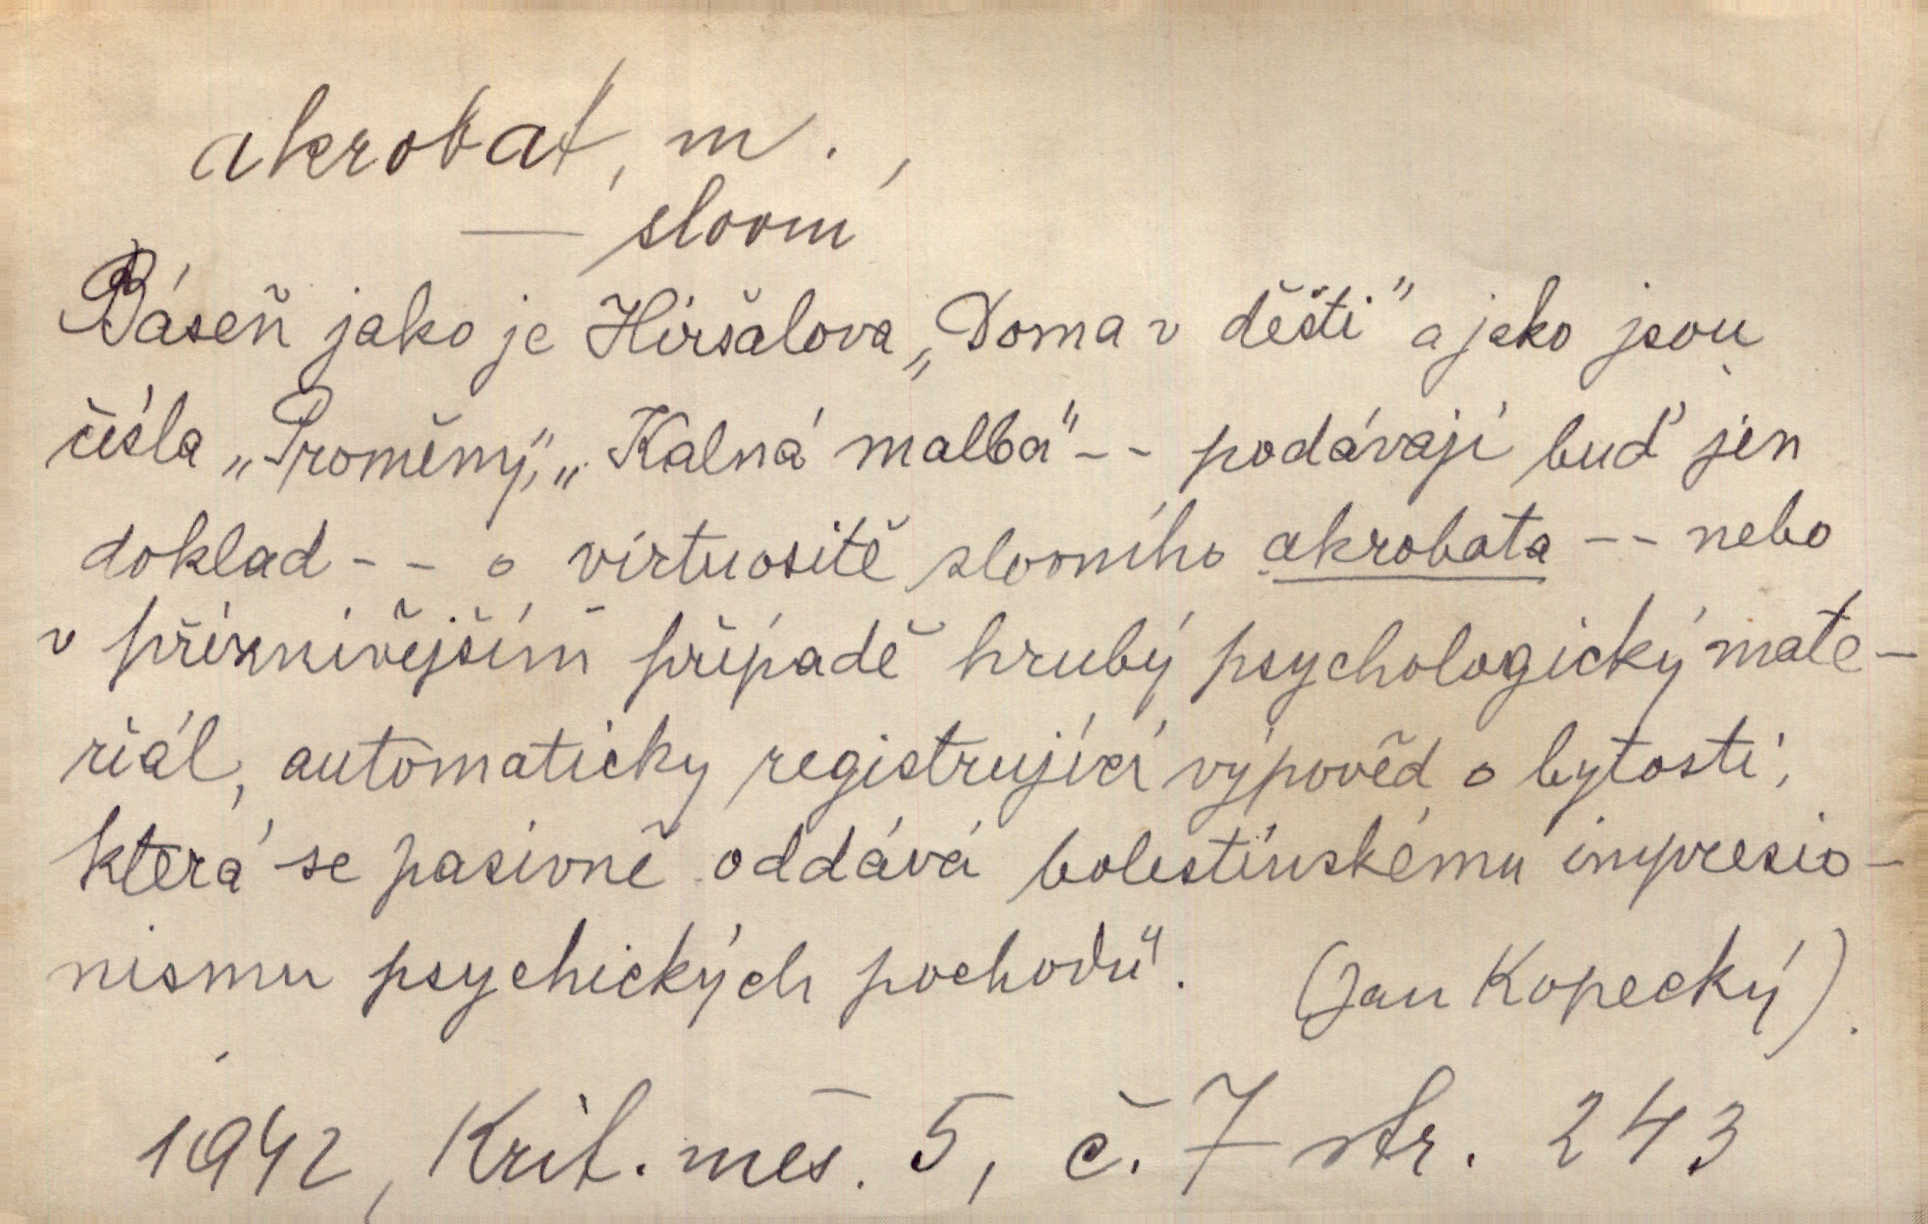 akrobat, m.,
— slovní
Báseň jako je Hiršalova „Doma v dešti" a jako jsou
čísla „Proměny", „Kalná malba" -- podávají buď jen
doklad -- o virtuositě slovního akrobata -- nebo
v příznivějším případě hrubý psychologický mate-
riál, automaticky registrující výpověd o bytosti,
která se pasivně oddává bolestínskému impresio-
nismu psychických pochodů".  (Jan Kopecký).
1942, Krit. měs. 5, č. 7 str. 243